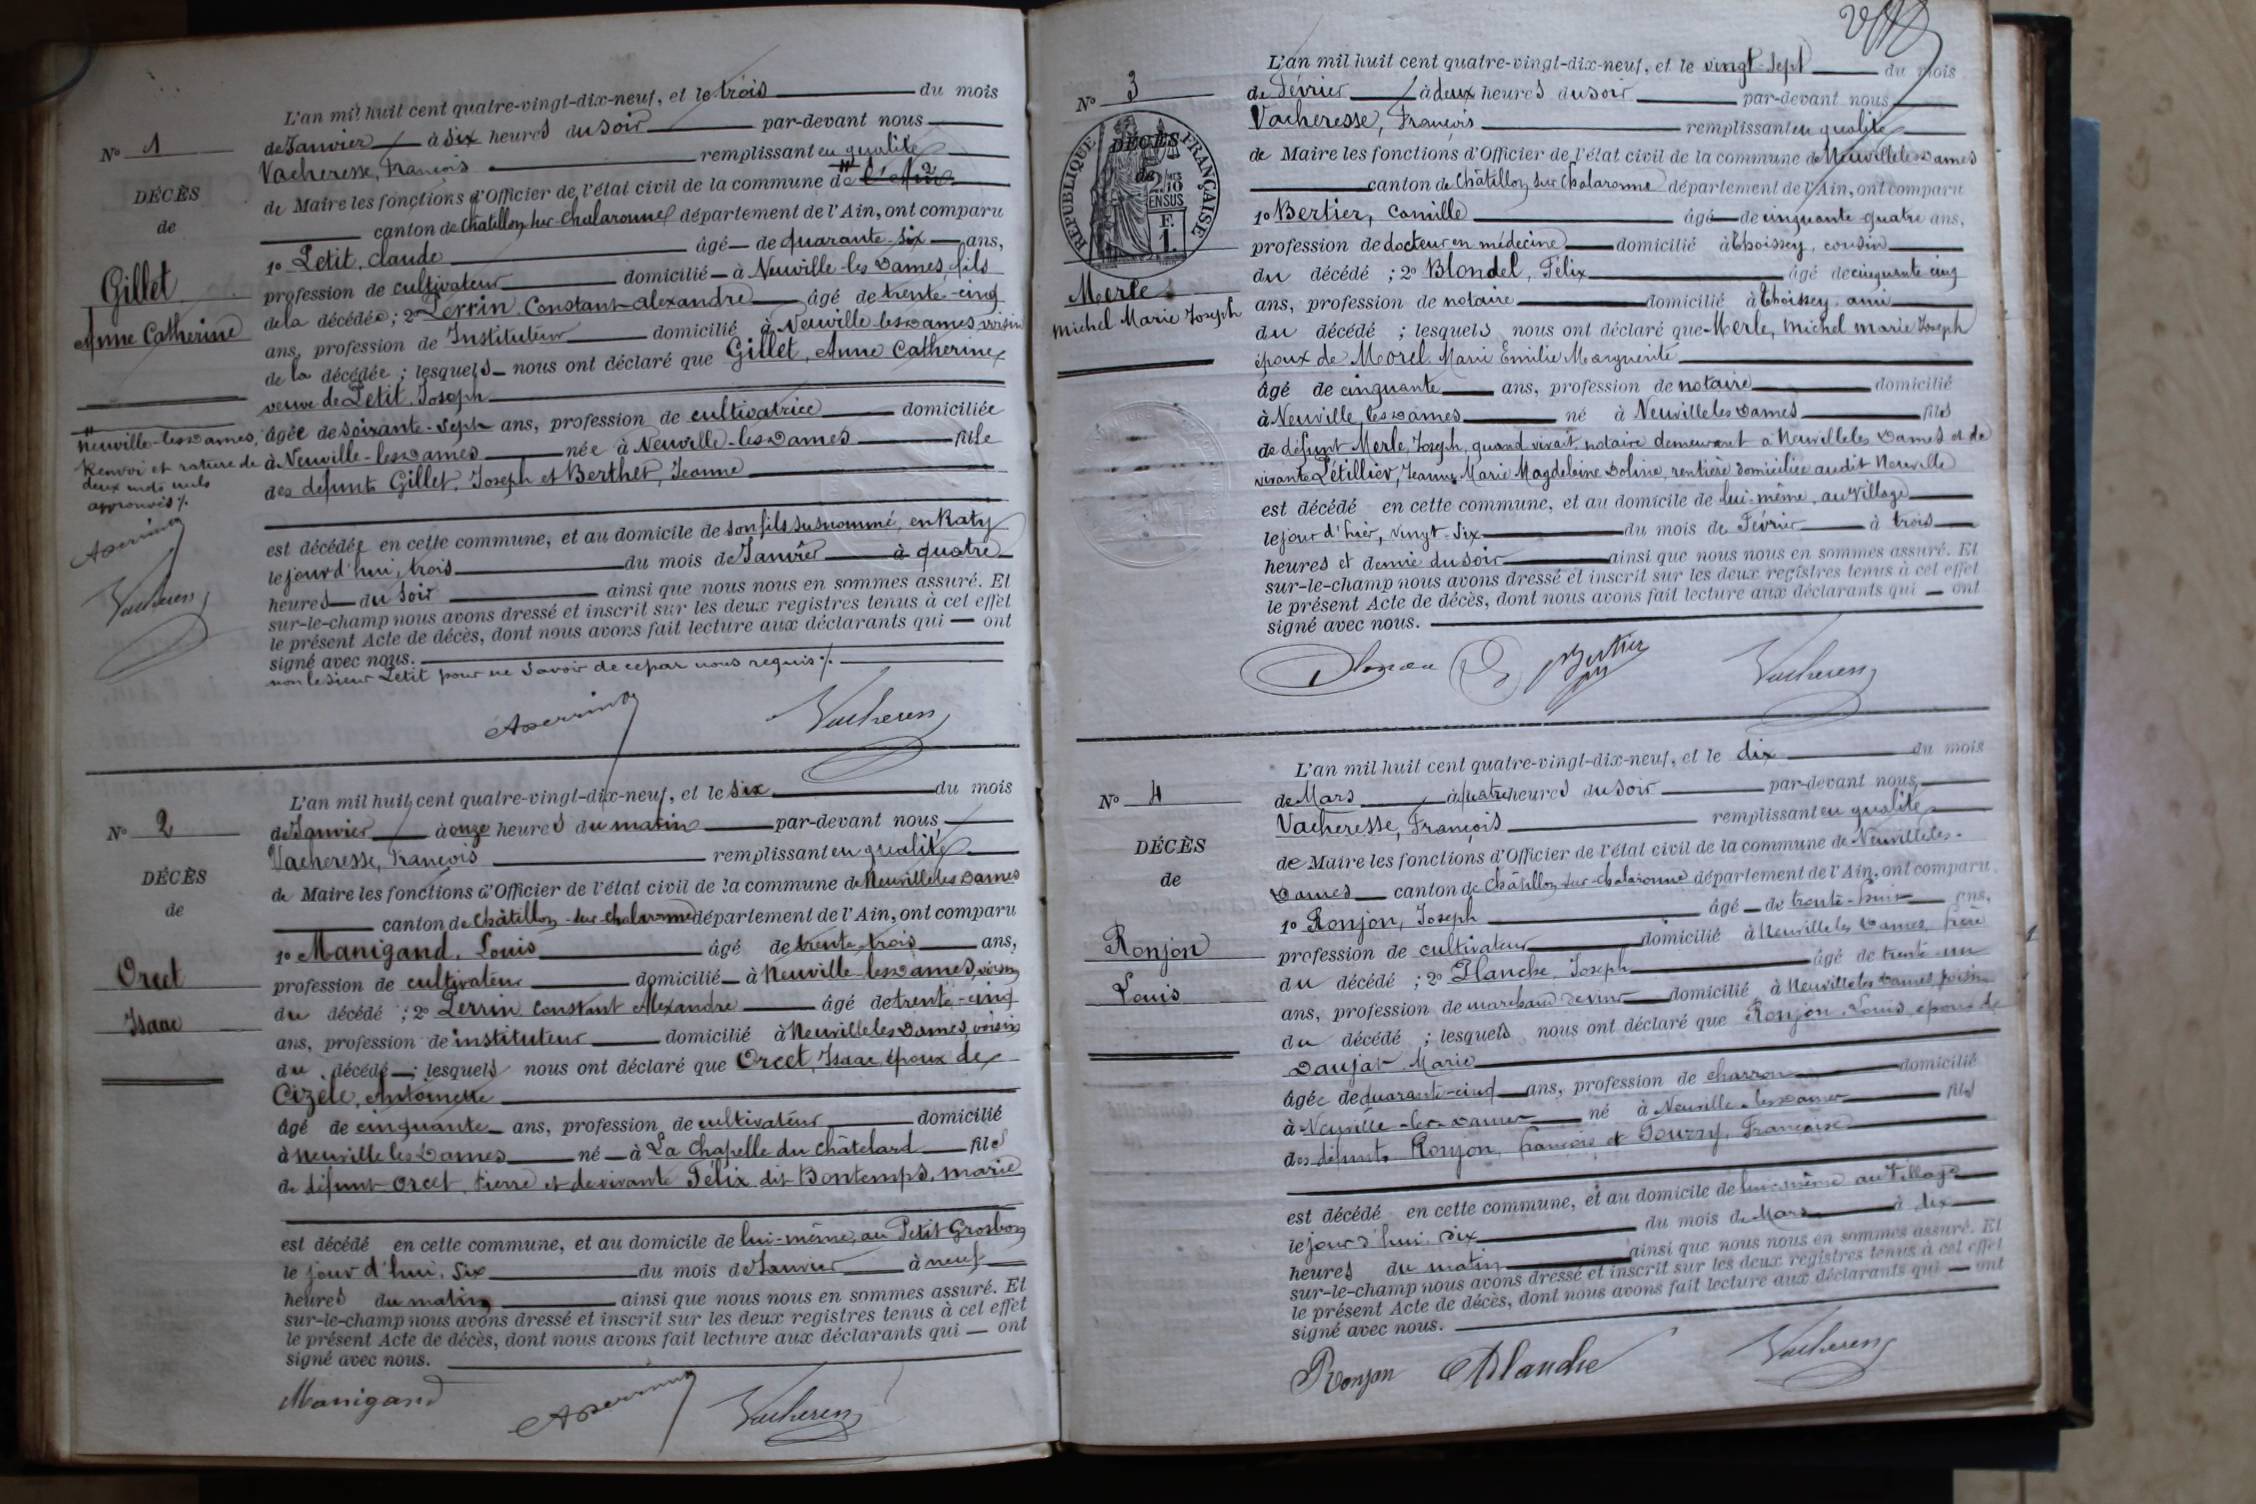 N° 1
DÉCÈS
de
Gillet
Anne Catherine
Neuville-les-Dames,
Renvoi et rature de
deux mots nuls
approuvés %
L'an mil huit cent quatre-vingt-dix-neuf, et le trois du mois
de Janvier à six heures du soir par-devant nous
Vacheresse, François remplissant en qualité
de Maire les fonctions d'Officier de l'état civil de la commune de
canton de Châtillon-sur-Chalaronne département de l'Ain, ont comparu
1° Petit, Claude âgé de quarante-six ans,
profession de cultivateur domicilié à Neuville-les-Dames fils
de la décédée ; 2° Perrin Constant-Alexandre âgé de trente-cinq
ans, profession de Instituteur domicilié à Neuville-les-Dames voisin
de la décédée ; lesquels nous ont déclaré que Gillet, Anne Catherine,
veuve de Petit, Joseph
âgée de soixante-sept ans, profession de cultivatrice domiciliée
à Neuville-les-Dames née à Neuville-les-Dames fille
des défunts Gillet, Joseph et Berthet, Jeanne
est décédée en cette commune, et au domicile de son fils susnommé, en Raty
le jour d'hui, trois du mois de Janvier à quatre
heures du soir ainsi que nous nous en sommes assuré. Et
sur-le-champ nous avons dressé et inscrit sur les deux registres tenus à cet effet
le présent Acte de décès, dont nous avons fait lecture aux déclarants qui ont
signé avec nous.
non le sieur Petit pour ne savoir de ce par nous requis %
APerrin Vacheresse
N° 2
DÉCÈS
de
Orcet
Isaac
L'an mil huit cent quatre-vingt-dix-neuf, et le six du mois
de Janvier à onze heures du matin par-devant nous
Vacheresse, François remplissant en qualité
de Maire les fonctions d'Officier de l'état civil de la commune de Neuville les Dames
canton de Châtillon-sur-Chalaronne département de l'Ain, ont comparu
1° Manigand, Louis âgé de trente-trois ans,
profession de cultivateur domicilié à Neuville-les-Dames, voisin
du décédé ; 2° Perrin Constant Alexandre âgé de trente-cinq
ans, profession de instituteur domicilié à Neuville les Dames, voisin
du décédé ; lesquels nous ont déclaré que Orcet, Isaac, époux de
Cizèle, Antoinette
âgé de cinquante ans, profession de cultivateur domicilié
à Neuville les Dames né à La Chapelle du Châtelard fils
de défunt Orcet, Pierre et de vivante Félix dit Bontemps, Marie
est décédé en cette commune, et au domicile de lui-même, au Petit Grosbon
le jour d'hui, six du mois de Janvier à neuf
heures du matin ainsi que nous nous en sommes assuré. Et
sur-le-champ nous avons dressé et inscrit sur les deux registres tenus à cet effet
le présent Acte de décès, dont nous avons fait lecture aux déclarants qui ont
signé avec nous.
Manigand APerrin Vacheresse
N° 3
RÉPUBLIQUE FRANÇAISE
DÉCÈS
de
Merle
Michel Marie Joseph
L'an mil huit cent quatre-vingt-dix-neuf, et le vingt-sept du mois
de Février à deux heures du soir par-devant nous
Vacheresse, François remplissant en qualité
de Maire les fonctions d'Officier de l'état civil de la commune de Neuville les Dames
canton de Châtillon sur Chalaronne département de l'Ain, ont comparu
1° Bertier, Camille âgé de cinquante quatre ans,
profession de docteur en médecine domicilié à Thoissey, cousin
du décédé ; 2° Blondel, Félix âgé de cinquante cinq
ans, profession de notaire domicilié à Thoissey, ami
du décédé ; lesquels nous ont déclaré que Merle, Michel Marie Joseph
époux de Morel, Marie Emilie Marguerite
âgé de cinquante ans, profession de notaire domicilié
à Neuville les Dames né à Neuville les Dames fils
de défunt Merle, Joseph, quand vivait notaire demeurant à Neuville les Dames et de
vivante Létillier, Jeanne Marie Magdeleine, rentière domiciliée audit Neuville
est décédé en cette commune, et au domicile de lui-même, au Village
le jour d'hier, vingt-six du mois de Février à trois
heures et demie du soir ainsi que nous nous en sommes assuré. Et
sur-le-champ nous avons dressé et inscrit sur les deux registres tenus à cet effet
le présent Acte de décès, dont nous avons fait lecture aux déclarants qui ont
signé avec nous.
Bertier Vacheresse
N° 4
DÉCÈS
de
Ronjon
Louis
L'an mil huit cent quatre-vingt-dix-neuf, et le dix du mois
de Mars à quatre heures du soir par-devant nous
Vacheresse, François remplissant en qualité
de Maire les fonctions d'Officier de l'état civil de la commune de Neuville les-
Dames canton de Châtillon-sur-Chalaronne département de l'Ain, ont comparu
1° Ronjon, Joseph âgé de trente-huit ans,
profession de cultivateur domicilié à Neuville les Dames, frère
du décédé ; 2° Planche, Joseph âgé de trente-un
ans, profession de marchand de vins domicilié à Neuville les Dames, voisin
du décédé ; lesquels nous ont déclaré que Ronjon, Louis, époux de
Daujat, Marie
âgée de quarante-cinq ans, profession de charron domicilié
à Neuville-les-Dames né à Neuville-les-Dames fils
des défunts Ronjon, François et Françoise
est décédé en cette commune, et au domicile de lui-même au Village
le jour d'hui, dix du mois de Mars à dix
heures du matin ainsi que nous nous en sommes assuré. Et
sur-le-champ nous avons dressé et inscrit sur les deux registres tenus à cet effet
le présent Acte de décès, dont nous avons fait lecture aux déclarants qui ont
signé avec nous.
Ronjon Planche Vacheresse